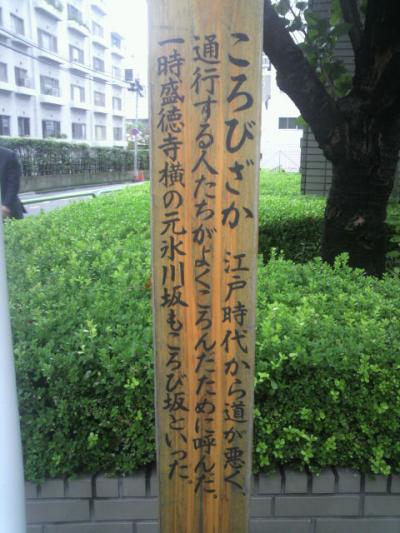 ころびざか 江戸時代から道が悪く、
通行する人たちがよくころんだために呼んだ。
一時盛徳寺横の元氷川坂もころび坂といった。